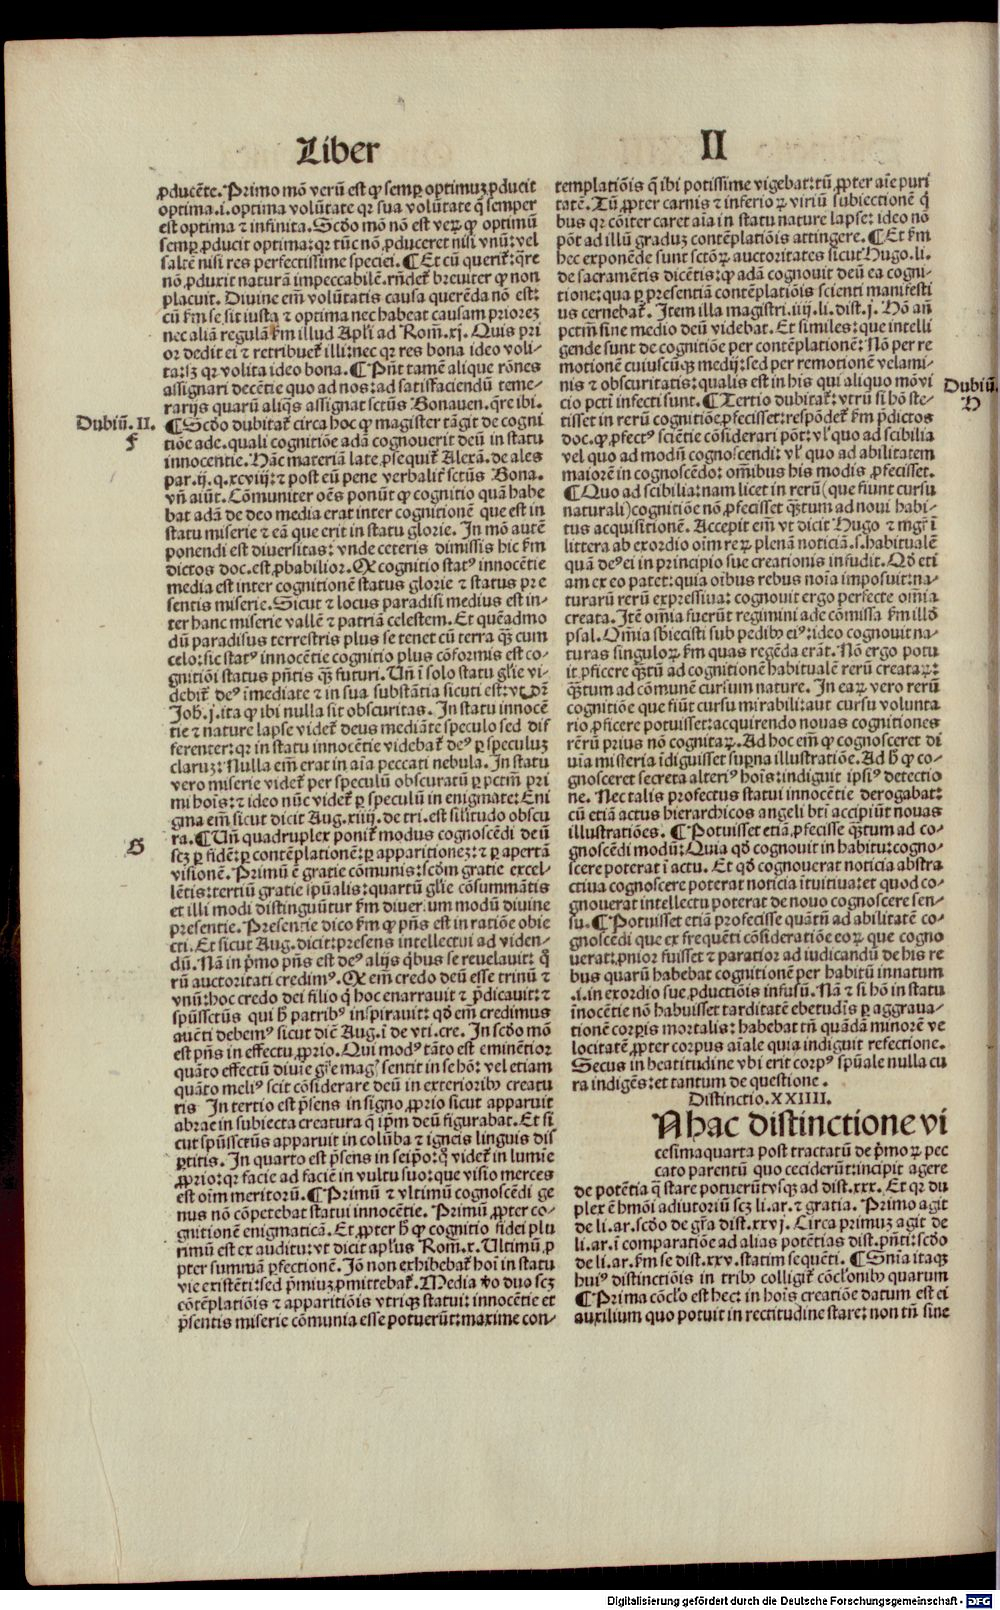 Liber
II
ꝓducēte. Primo mō verū est ꝙ semꝑ optimuꝫ ꝓducit
optima.i.optima volūtate qꝛ sua volūtate q̄ semper
est optima ⁊ infinita. Scḋo mō nō est veꝝ ꝙ optimū
semꝑ ꝓducit optima: qꝛ tūc nō ꝓduceret nisi vnū: vel
saltē nisi res perfectissime speciei. ¶ Et cū querit᷑: q̄re
nō ꝓduxit naturā impeccabilē. rn̄det᷑ breuiter ꝙ non
placuit. Diuine em̄ volūtatis causa querēda nō est:
cū ẜm se sit iusta ⁊ optima nec habeat causam priorez
nec aliā regulā ẜm illud Apl̓i ad Rom̄.xj. Quis pri
or dedit ei ⁊ retribuet᷑ illi: nec qꝛ res bona ideo voli-
ta: sꝫ qꝛ volita ideo bona. ¶ Pn̄t tamē alique rōnes
assignari decētie quo ad nos: ad satisfaciendū teme-
rarijs quarū aliq̄s assignat sctūs Bonauen. q̄re ibi.
Dubiū. II.
F
¶ Scḋo dubitat᷑ circa hoc ꝙ magister tāgit de cogni
tiōe ade. quali cognitiōe adā cognouerit deū in statu
innocentie. Hāc materiā late ꝓsequit᷑ Alexā. de ales
par.ij.q.xcviij: ⁊ post eū pene verbalit᷑ sctūs Bona.
vn̄ aiūt. Cōmuniter oēs ponūt ꝙ cognitio quā habe
bat adā de deo media erat inter cognitionē que est in
statu miserie ⁊ eā que erit in statu glorie. In mō autē
ponendi est diuersitas: vnde ceteris dimissis hic ẜm
dictos doc. est ꝓbabilior. Qꝙ cognitio statꝰ innocētie
media est inter cognitionē status glorie ⁊ status pre
sentis miserie. Sicut ⁊ locus paradisi medius est in-
ter hanc miserie vallē ⁊ patriā celestem. Et quēadmo
dū paradisus terrestris plus se tenet cū terra q̄ꝫ cum
celo: sic statꝰ innocētie cognitio plus cōformis est co-
gnitiōi status pn̄tis q̄ꝫ futuri. Vn̄ ī solo statu gl̓ie vi-
debit᷑ deꝰ īmediate ⁊ in sua substātia sicuti est: vt dr̄
Joh̄.j. ita ꝙ ibi nulla sit obscuritas. In statu innocē
tie ⁊ nature lapse videt᷑ deus mediāte speculo sed dif
ferenter: qꝛ in statu innocētie videbat᷑ deꝰ ꝑ speculuꝫ
claruꝫ: Nulla em̄ erat in aīa peccati nebula. In statu
vero miserie videt᷑ per speculū obscuratū ꝑ pctm̄ pri
mi hoīs: ⁊ ideo nūc videt᷑ ꝑ speculū in enigmate: Eni
gma em̄ sicut dicit Aug.xiiij. de tri. est sil̓itudo obscu
G
ra. ¶ Vn̄ quadruplex ponit᷑ modus cognoscēdi deū
scꝫ ꝑ fidē: ꝑ contēplationē: ꝑ apparitionez: ⁊ ꝑ apertā
visionē. Primū ē gratie cōmunis: scḋm gratie excel-
lētis: tertiū gratie spūalis: quartū gl̓ie cōsummātis
et illi modi distinguūtur ẜm diuersum modū diuine
presentie. Presentie dico ẜm ꝙ pn̄s est in ratiōe obie
cti. Et sicut Aug. dicit: presens intellectui ad viden-
dū. Nā in pͥmo pn̄s est deꝰ alijs qͥbus se reuelauit: qͦ
rū auctoritati credimꝰ. Qꝙ em̄ credo deū esse trinū ⁊
vnū: hoc credo dei filio qͥ hoc enarrauit ⁊ p̄dicauit: ⁊
spūssctūs qui h̄ patribꝰ inspirauit: qḋ em̄ credimus
aucti debemꝰ sicut dic̄ Aug. ī de vti.cre. In scḋo mō
est pn̄s in effectu ꝓprio. Qui modꝰ tāto est eminētior
quāto effectū diuīe gr̄e magꝭ sentit in se hō: vel etiam
quāto meliꝰ scit cōsiderare deū in exteriorib⁹ creatu
ris In tertio est p̄sens in signo ꝓprio sicut apparuit
abrae in subiecta creatura q̄ ip̄m deū figurabat. Et si
cut spūssctūs apparuit in colūba ⁊ igneis linguis dis
ꝑtitis. In quarto est p̄sens in seip̄o: qͦ videt᷑ in lumīe
ꝓprio: qꝛ facie ad faciē in vultu suo: que visio merces
est oīm meritorū. ¶ Primū ⁊ vltimū cognoscēdi ge
nus nō cōpetebat statui innocētie. Primū ꝓpter co-
gnitionē enigmaticā. Et ꝓpter h̄ ꝙ cognitio fidei plu
rimū est ex auditu: vt dicit apl̓us Rom̄.x. Vltimū ꝓ
pter summā ꝑfectionē. Jō non exhibebat᷑ hoī in statu
vie existēti: sed p̄miuꝫ ꝓmittebat᷑. Media v̓o duo scꝫ
cōtēplatiōis ⁊ apparitiōis vtriqꝫ statui: innocētie et
p̄sentis miserie cōmunia esse potuerūt: maxime con-
templatiōis q̄ ibi potissime vigebat: tū ꝓpter aīe puri
tatē. Tū ꝓpter carnis ⁊ inferioꝝ viriū subiectionē qͥ
bus qꝛ cōiter caret aīa in statu nature lapse: ideo nō
pōt ad illū graduꝫ contēplatiōis attingere. ¶ Et ẜm
hec exponēde sunt sctōꝝ auctoritates sicut Hugo.li.
de sacramētis dicētis: ꝙ adā cognouit deū ea cogni-
tione: qua ꝑ presentiā contēplatiōis scienti manifesti
us cernebat᷑. Item illa magistri.iiij.li.dist.j. Hō an̄
pctm̄ sine medio deū videbat. Et similes: que intelli
gende sunt de cognitiōe per contēplationē: Nō per re
motionē cuiuscūqꝫ medij: sed per remotionē velami-
nis ⁊ obscuritatis: qualis est in his qui aliquo mō vi
Dubiū.
H
cio pcti infecti sunt. ¶ Tertio dubitat᷑: vtrū si hō ste-
tisset in rerū cognitiōe ꝓfecisset: respōdet᷑ ẜm p̄dictos
doc. ꝙ ꝓfectꝰ sciētie cōsiderari pōt: vl̓ quo ad scibilia
vel quo ad modū cognoscendi: vl̓ quo ad abilitatem
maiorē in cognoscēdo: om̄ibus his modis ꝓfecisset.
¶ Quo ad scibilia: nam licet in rerū (que fiunt cursu
naturali) cognitiōe nō ꝓfecisset q̄ꝫtum ad noui habi-
tus acquisitionē. Accepit em̄ vt dicit Hugo ⁊ mgr̄ ī
littera ab exordio oīm reꝝ plenā noticiā.s.habitualē
quā deꝰ ei in principio sue creationis infudit. Qḋ eti
am ex eo patet: quia oībus rebus noīa imposuit: na-
turarū rerū expressiua: cognouit ergo perfecte om̄ia
creata. Itē om̄ia fuerūt regimini ade cōmissa ẜm illḋ
psal. Om̄ia sb̓iecisti sub pedib⁹ eiꝰ: ideo cognouit na-
turas singuloꝝ ẜm quas regēda erāt. Nō ergo potu
it ꝓficere q̄ꝫtū ad cognitionē habitualē rerū creataꝝ:
q̄ꝫtum ad cōmunē cursum nature. In eaꝝ vero rerū
cognitiōe que fiūt cursu mirabili: aut cursu volunta
rio ꝓficere potuisset: acquirendo nouas cognitiones
rērū prius nō cognitaꝝ. Ad hoc em̄ ꝙ cognosceret di
uīa misteria īdiguisset suꝑna illustratiōe. Ad h̄ ꝙ co-
gnosceret secreta alteriꝰ hoīs: indiguit ipsiꝰ detectio
ne. Nec talis profectus statui innocētie derogabat:
cū etiā actus hierarchicos angeli bt̄i accipiūt nouas
illustratiōes. ¶ Potuisset etiā ꝓfecisse q̄ꝫtum ad co-
gnoscēdi modū: Quia qḋ cognouit in habitu: cogno-
scere poterat ī actu. Et qḋ cognouerat noticia abstra
ctiua cognoscere poterat noticia ītuitiua: et quod co-
gnouerat intellectu poterat de nouo cognoscere sen-
su. ¶ Potuisset etiā profecisse quātū ad abilitatē co-
gnoscēdi que ex frequēti cōsideratiōe eoꝝ que cogno
uerat: ꝓnior fuisset ⁊ paratior ad iudicandū de his re
bus quarū habebat cognitionē per habitū innatum
.i.in exordio sue ꝓductiōis infusū. Nā ⁊ si hō in statu
īnocētie nō habuisset tarditatē ebetudīs ꝑ aggraua-
tionē corꝑis mortalis: habebat tn̄ quādā minorē ve
locitatē ꝓpter corpus aīale quia indiguit refectione.
Secus in beatitudine vbi erit corpꝰ spūale nulla cu
ra indigēs: et tantum de questione.
Distinctio.XXIIII.
N hac distinctione vi
cesimaquarta post tractatū de pͥmoꝝ pec
cato parentū quo ceciderūt: incipit agere
de potētia q̄ stare potuerūt vsqꝫ ad dist.xxx. Et qꝛ du
plex ē hmōi adiutoriū scꝫ li.ar. ⁊ gratia. Primo agit
de li.ar. scḋo de gr̄a dist.xxvj. Circa primuꝫ agit de
li.ar. ī comparatiōe ad alias potētias dist.pn̄ti: scḋo
de li.ar. ẜm se dist.xxv. statim sequēti. ¶ Snīa itaqꝫ
huiꝰ distinctiōis in trib⁹ colligit᷑ cōcl̓onib⁹ quarum
¶ Prima cōcl̓o est hec: in hoīs creatiōe datum est ei
auxilium quo potuit in rectitudine stare: non tn̄ sine
Digitalisierung gefördert durch die Deutsche Forschungsgemeinschaft - DFG